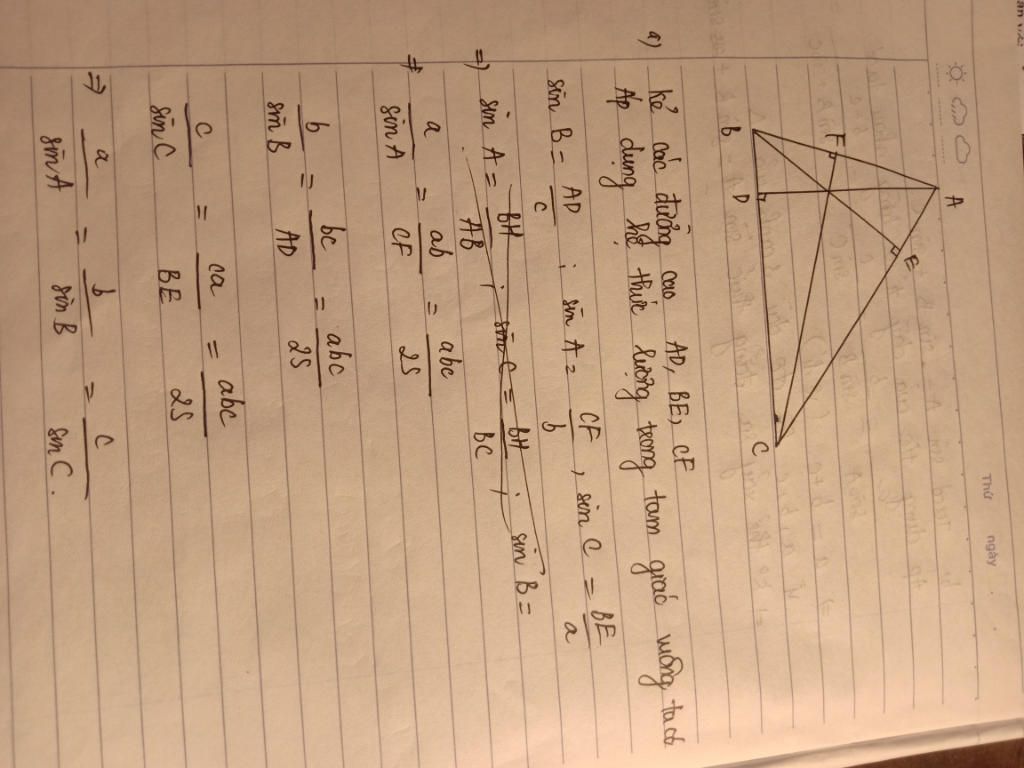 Thứ
ngày
A
F
E
B
D
C
a)
kẻ các đường cao AD, BE, CF
Áp dụng hệ thức lượng trong tam giác vuông ta có
sin B = AD/c ; sin A = CF/b , sin C = BE/a
=) sin A = BH/AB ; sin C = BH/BC ; sin B =
=> a/sin A = ab/CF = abc/2S
b/sin B = bc/AD = abc/2S
c/sin C = ca/BE = abc/2S
=) a/sin A = b/sin B = c/sin C.